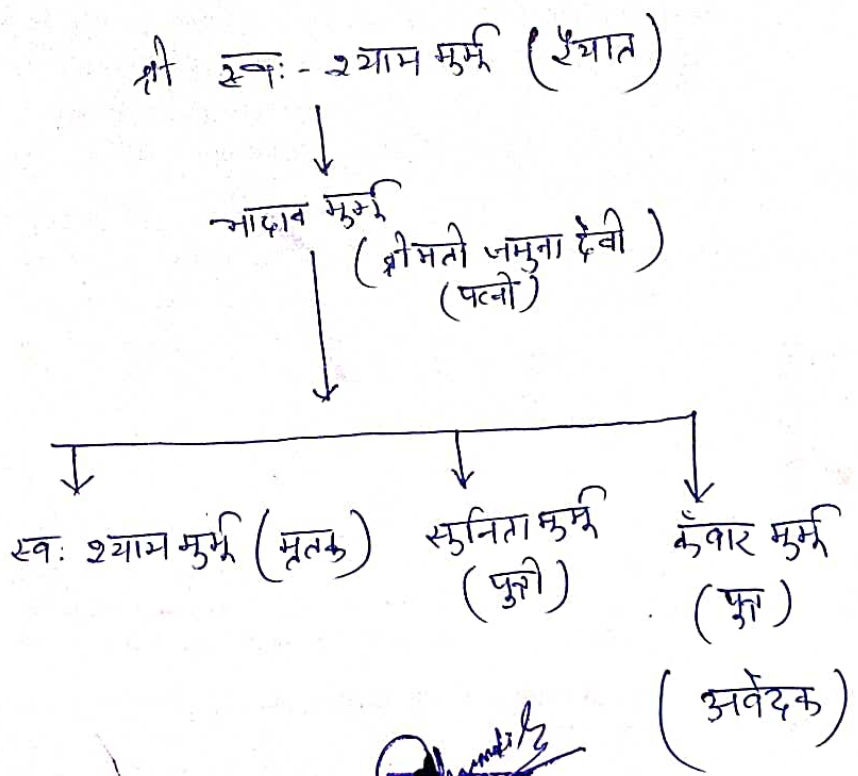 श्री स्व: - श्याम मुर्मू (रैयात)
भादाव मुर्मू
(श्रीमती जमुना देवी)
(पत्नी)
स्व: श्याम मुर्मू (मृतक)
सुनिता मुर्मू
(पुत्री)
कुँवार मुर्मू
(पुत्र)
(आवेदक)